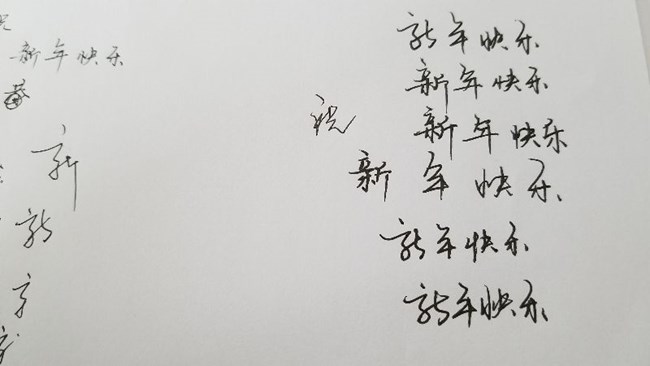 新年快乐
新
新
新年快乐
新年快乐
祝
新年快乐
新年快乐
新年快乐
新年快乐